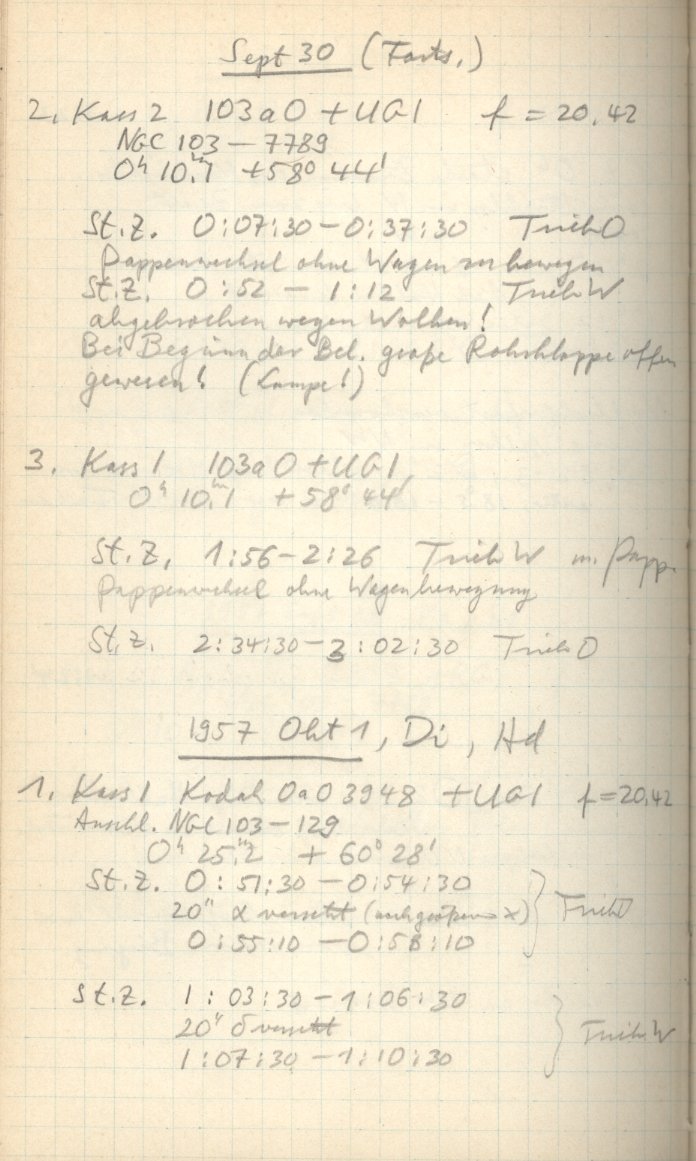 Sept 30 (Forts.)
2. Kass 2 103aO + UG1 f = 20,42
NGC 103 – 7789
0h 10.m1 +58° 44'
St.Z. 0:07:30 – 0:37:30 Trieb O
Pappenwechsel ohne Wagen zu bewegen
St.Z. 0:52 – 1:12 Trieb W
abgebrochen wegen Wolken!
Bei Beginn der Bel. große Rohrklappe offen
gewesen! (Lampe!)
3. Kass 1 103aO + UG1
0h 10.m1 +58° 44'
St.Z. 1:56 – 2:26 Trieb W m. Pappe
Pappenwechsel ohne Wagenbewegung
St.Z. 2:34:30 – 3:02:30 Trieb O
1957 Okt 1, Di, Hd
1. Kass 1 Kodak OaO 3948 + UG1 f = 20,42
Anschl. NGC 103 – 129
0h 25.m2 + 60° 28'
St.Z. 0:51:30 – 0:54:30
20" α versetzt (nach größerem α) Trieb O
0:55:10 – 0:58:10
St.Z. 1:03:30 – 1:06:30
20" δ versetzt Trieb W
1:07:30 – 1:10:30